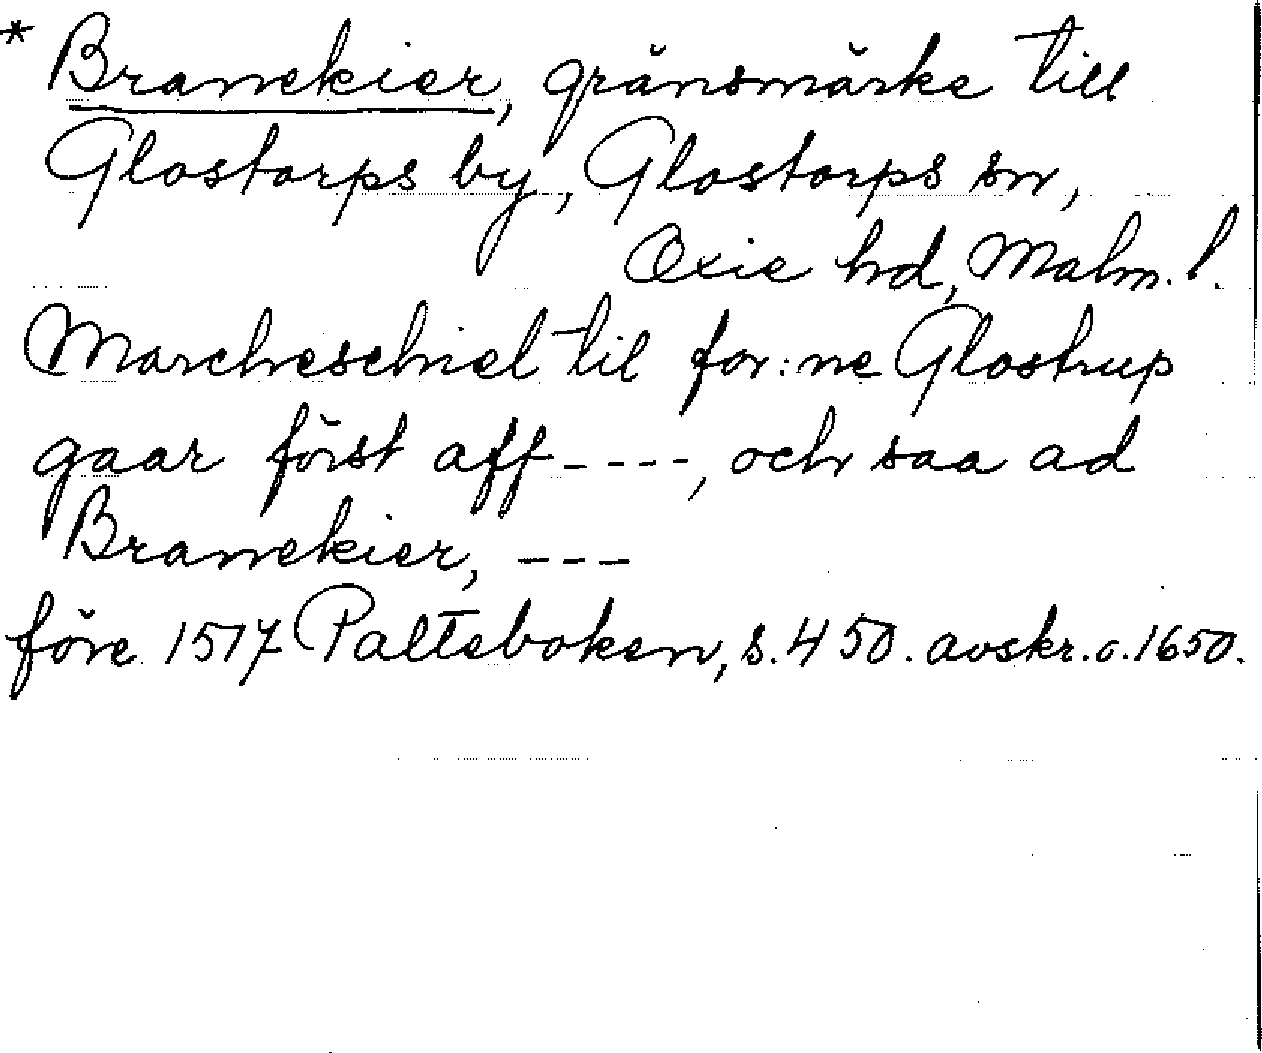 * Brannekier, gränsmärke till
Glostorps by, Glostorps sn,
Oxie hd, Malm. l.
Marcheschiel til for:ne Glostrup
gaar först aff ----, och saa ad
Brannekier, ---
före 1517 Palteboken, s. 450. avskr. o. 1650.